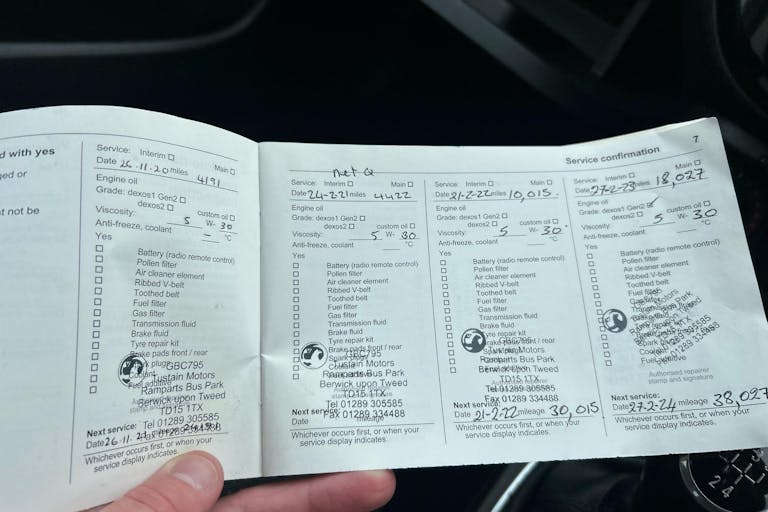 d with yes
ged or
t not be
Service: Interim
Main
Date 26.11.20 miles 4191
Engine oil
Grade: dexos1 Gen2
dexos2
custom oil
Viscosity: 5 W- 30
Anti-freeze, coolant – °C
Yes
Battery (radio remote control)
Pollen filter
Air cleaner element
Ribbed V-belt
Toothed belt
Fuel filter
Gas filter
Transmission fluid
Brake fluid
Tyre repair kit
Brake pads front / rear
GBC795
Tustain Motors
Ramparts Bus Park
Berwick upon Tweed
TD15 1TX
Tel 01289 305585
Fax 01289 334488
Next service:
Date 26.11.21
Whichever occurs first, or when your
service display indicates.
Service confirmation
7
Service: Interim
Main
Date 24-2-21 miles 4422
Engine oil
Grade: dexos1 Gen2
dexos2
custom oil
Viscosity: 5 W- 30
Anti-freeze, coolant °C
Yes
Battery (radio remote control)
Pollen filter
Air cleaner element
Ribbed V-belt
Toothed belt
Fuel filter
Gas filter
Transmission fluid
Brake fluid
Tyre repair kit
Brake pads front / rear
GBC795
Tustain Motors
Ramparts Bus Park
Berwick upon Tweed
TD15 1TX
Tel 01289 305585
Fax 01289 334488
Next service:
Date
Whichever occurs first, or when your
service display indicates.
Service: Interim
Main
Date 21-2-22 miles 10,015.
Engine oil
Grade: dexos1 Gen2
dexos2
custom oil
Viscosity: 5 W- 30
Anti-freeze, coolant °C
Yes
Battery (radio remote control)
Pollen filter
Air cleaner element
Ribbed V-belt
Toothed belt
Fuel filter
Gas filter
Transmission fluid
Brake fluid
Tyre repair kit
Brake pads front / rear
GBC795
Tustain Motors
Ramparts Bus Park
Berwick upon Tweed
TD15 1TX
Tel 01289 305585
Fax 01289 334488
Next service:
Date 21-2-22 mileage 30,015
Whichever occurs first, or when your
service display indicates.
Service: Interim
Main
Date 27-2-23 miles 18,027
Engine oil
Grade: dexos1 Gen2
dexos2
custom oil
Viscosity: 5 W- 30
Anti-freeze, coolant °C
Yes
Battery (radio remote control)
Pollen filter
Air cleaner element
Ribbed V-belt
Toothed belt
Fuel filter
Gas filter
Transmission fluid
Brake fluid
Tyre repair kit
Brake pads front / rear
Authorised repairer
stamp and signature
Next service:
Date 27-2-24 mileage 38,027
Whichever occurs first, or when your
service display indicates.
2 4